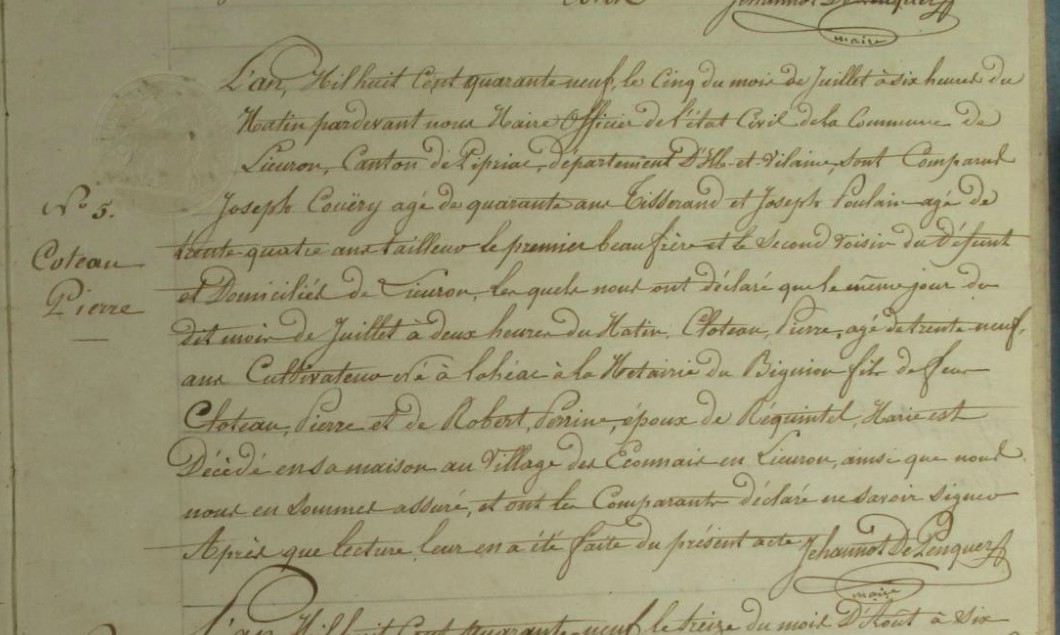 Jehannot De Penquer
maire
L'an, Mil huit Cent quarante neuf, le Cinq du mois de Juillet à six heures du
Matin pardevant nous Maire Officier de l'état Civil de la Commune de
Lieuron, Canton de Pipriac, département D'Ille-et-Vilaine, sont Comparus
Joseph Couëry agé de quarante ans Tisserand et Joseph Poulain agé de
trente quatre ans tailleur le premier beau frère et le Second Voisin du Défunt
et Domiciliés de Lieuron, Les quels nous ont déclaré que le même jour du
dit mois de Juillet à deux heures du Matin. Cloteau, Pierre, agé de trente neuf
ans Cultivateur Né à Lohéac à la Métairie du Bignion fils de feu
Cloteau, Pierre et de Robert, Perrine, époux de Réquintel, Marie est
Décédé en sa maison au Village des Econnais en Lieuron, ainsi que nous
nous en sommes assuré, et ont les Comparants déclaré ne savoir signer
Après que lecture leur en a été faite du présent acte. Jehannot De Penquer
maire
N° 5.
Coteau
Pierre
L'an Mil huit Cent quarante neuf le treize du mois D'Aout à six